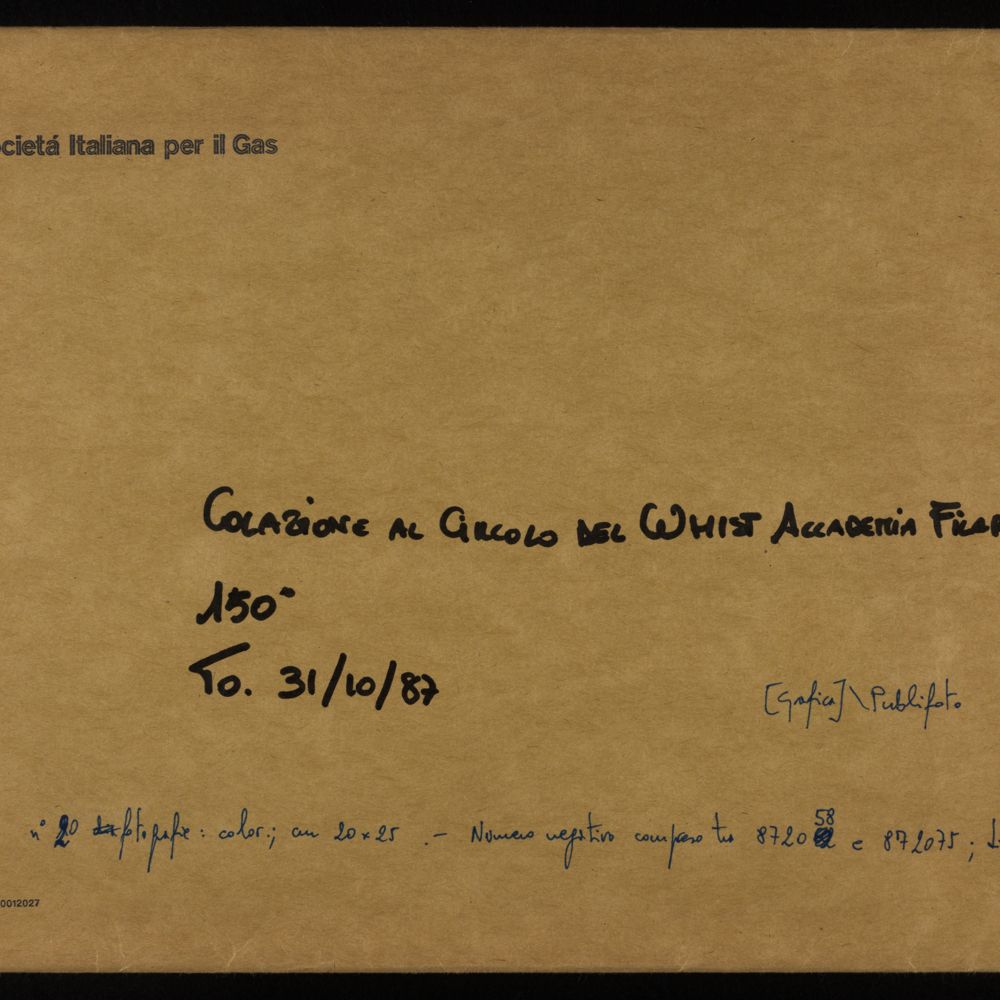 cietá Italiana per il Gas
COLAZIONE AL CIRCOLO DEL WHIST ACCADEMIA
150°
To. 31/10/87
[Grafica] \ Publifoto
n° 20 fotografie : color.; cm 20 x 25 . - Numero negativo compreso tra 872058 e 872075 ;
0012027